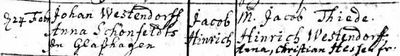 d 24 Febr Johan Westendorff Jacob M. Jacob Thiede.
Anna Schönfeldts Hinrich Hinrich Westendorf,
in Glashagen Anna, Christian Hessel fr.